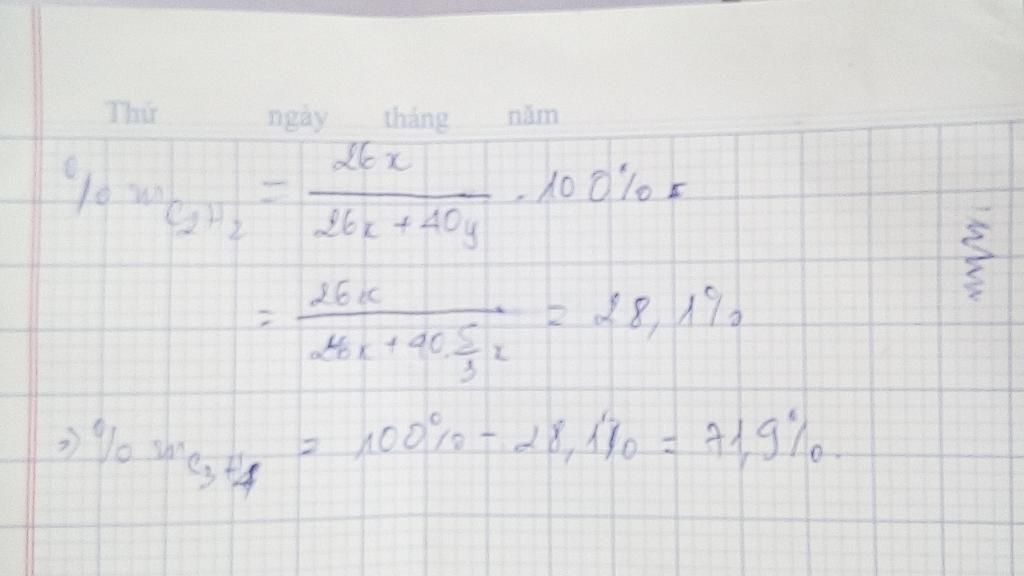 Thứ ngày tháng năm
% m C2H2 = 26x / 26x + 40y . 100%
= 26x / 26x + 40. 5/3 x = 28,1%
=> % m C3H4 = 100% - 28,1% = 71,9%.